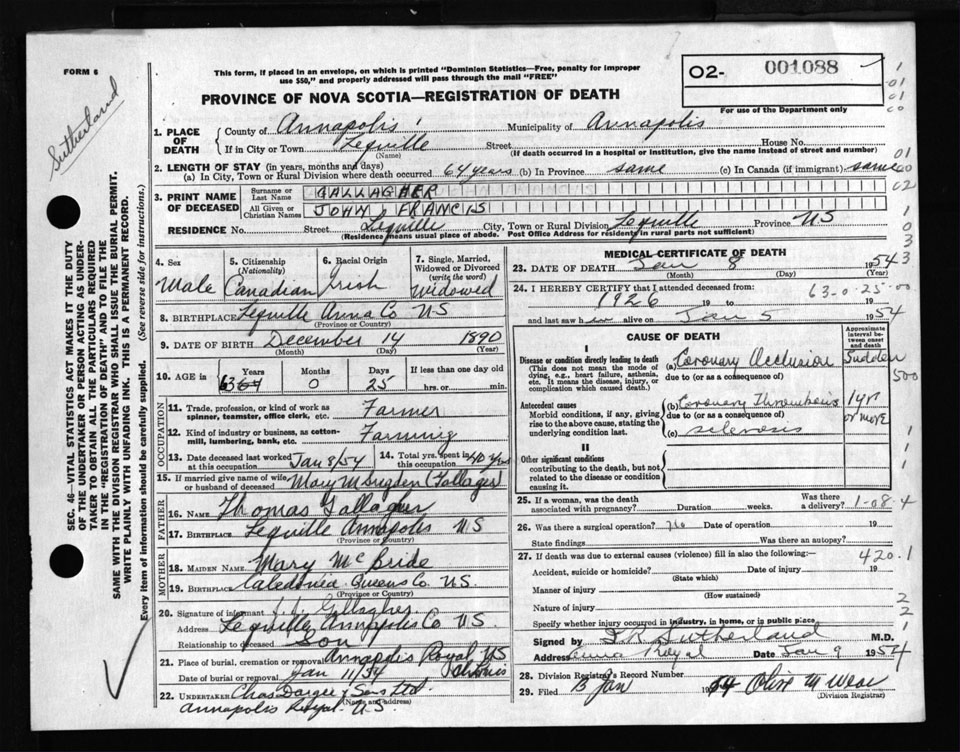 FORM 6
This form, if placed in an envelope, on which is printed "Dominion Statistics—Free, penalty for improper
use $50," and properly addressed will pass through the mail "FREE"
O2- 001088
For use of the Department only
PROVINCE OF NOVA SCOTIA—REGISTRATION OF DEATH
Sutherland
SEC. 46—VITAL STATISTICS ACT MAKES IT THE DUTY
OF THE UNDERTAKER OR PERSON ACTING AS UNDER-
TAKER TO OBTAIN ALL THE PARTICULARS REQUIRED
IN THE "REGISTRATION OF DEATH" AND TO FILE THE
SAME WITH THE DIVISION REGISTRAR WHO SHALL ISSUE THE BURIAL PERMIT.
WRITE PLAINLY WITH UNFADING INK. THIS IS A PERMANENT RECORD.
Every item of information should be carefully supplied. (See reverse side for instructions.)
1. PLACE OF DEATH
County of Annapolis Municipality of Annapolis
If in City or Town Lequille Street House No.
(Name) (If death occurred in a hospital or institution, give the name instead of street and number)
2. LENGTH OF STAY (in years, months and days)
(a) In City, Town or Rural Division where death occurred 64 years (b) In Province same (c) In Canada (if immigrant) same
3. PRINT NAME OF DECEASED
Surname or Last Name GALLAGHER
All Given or Christian Names JOHN FRANCIS
RESIDENCE No. Street Lequille City, Town or Rural Division Lequille Province NS
(Residence means usual place of abode. Post Office Address for residents in rural parts not sufficient)
4. Sex Male
5. Citizenship (Nationality) Canadian
6. Racial Origin Irish
7. Single, Married, Widowed or Divorced (write the word) Widowed
8. BIRTHPLACE Lequille Anna Co NS
(Province or Country)
9. DATE OF BIRTH December 14 1890
(Month) (Day) (Year)
10. AGE in Years 63 Months 0 Days 25 If less than one day old
hrs. or min.
OCCUPATION
11. Trade, profession, or kind of work as spinner, teamster, office clerk, etc. Farmer
12. Kind of industry or business, as cotton-mill, lumbering, bank, etc. Farming
13. Date deceased last worked at this occupation Jan 8/54
14. Total yrs. spent in this occupation 40 yrs
15. If married give name of wife or husband of deceased Mary M Sugden (Gallager)
FATHER
16. NAME Thomas Gallagher
17. BIRTHPLACE Lequille Annapolis NS
(Province or Country)
MOTHER
18. MAIDEN NAME Mary McBride
19. BIRTHPLACE Caledonia Queens Co NS.
(Province or Country)
20. Signature of informant Gallagher
Address Lequille Annapolis Co NS.
Relationship to deceased Son
21. Place of burial, cremation or removal Annapolis Royal NS
Date of burial or removal Jan 11/54 St Louis
22. UNDERTAKER Chas Dargie & Sons Ltd.
(Name and address)
Annapolis Royal. N.S.
MEDICAL CERTIFICATE OF DEATH
23. DATE OF DEATH Jan 8 1954
(Month) (Day) (Year)
24. I HEREBY CERTIFY that I attended deceased from
1926 19 to 19
63-0-25-00
and last saw him alive on Jan 5 1954
CAUSE OF DEATH
Approximate interval between onset and death
I
Disease or condition directly leading to death
(This does not mean the mode of dying, e.g., heart failure, asthenia, etc. It means the disease, injury, or complication which caused death.)
(a) Coronary Occlusion Sudden
due to (or as a consequence of)
500
Antecedent causes
Morbid conditions, if any, giving rise to the above cause, stating the underlying condition last.
(b) Coronary Thrombosis 1 yr or more
due to (or as a consequence of)
(c) sclerosis
II
Other significant conditions
contributing to the death, but not related to the disease or condition causing it.
25. If a woman, was the death associated with pregnancy? Duration weeks. Was there a delivery?
1-08-4
26. Was there a surgical operation? No Date of operation 19
State findings Was there an autopsy?
27. If death was due to external causes (violence) fill in also the following:—
420.1
Accident, suicide or homicide? Date of injury 19
(State which)
Manner of injury
(How sustained)
Nature of injury
Specify whether injury occurred in industry, in home, or in public place
Signed by Sutherland M.D.
Address Anna Royal Date Jan 9 1954
28. Division Registrar's Record Number
29. Filed 15 Jan 1954 Olive M Wear
(Division Registrar)